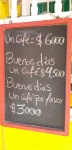 Un café = $ 6000
Buenos días
Un café = $ 4500
Buenos días
Un café por favor
$ 3000